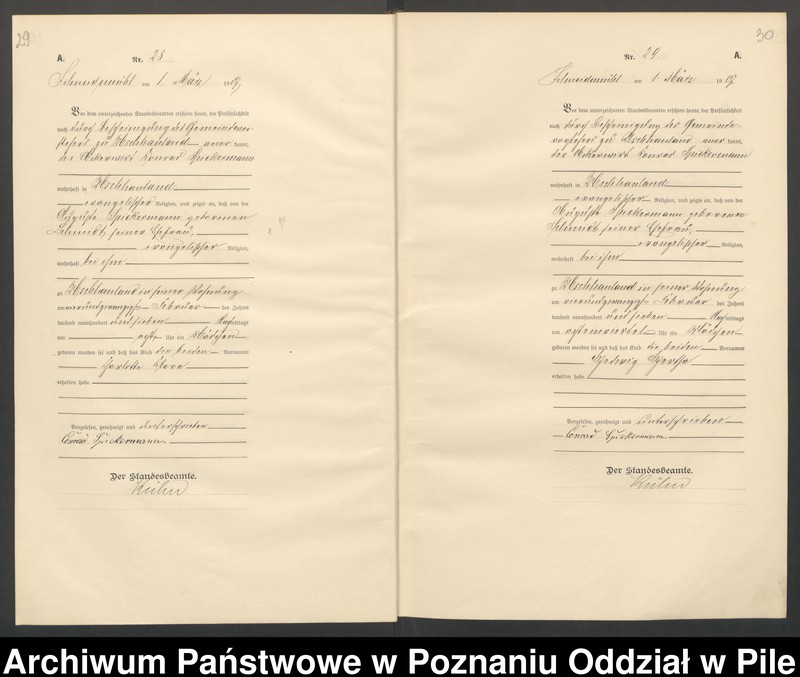 29
A.
Nr. 28
am 1 März 1907
Vor dem unterzeichneten Standesbeamten erschien heute, der Persönlichkeit
nach durch Bescheinigung des Gemeindevor-
stehers zu Uschhauland aner kannt,
der Ackerwirt Konrad Spickermann
wohnhaft in Uschhauland
evangelischer Religion, und zeigte an, daß von der
Auguste Spickermann geborenen
Schmidt, seiner Ehefrau,
evangelischer Religion,
wohnhaft bei ihm
zu Uschhauland in seiner Wohnung
am vierundzwanzigsten Februar des Jahres
tausend neunhundert und sieben Nachmittags
um acht Uhr ein Mädchen
geboren worden sei und daß das Kind die beiden Vornamen
Clara
erhalten habe
Vorgelesen, genehmigt und unterschrieben
Conrad Spickermann
Der Standesbeamte.
30
Nr. 29
A.
am 1 März 1907
Vor dem unterzeichneten Standesbeamten erschien heute, der Persönlichkeit
nach durch Bescheinigung des Gemeinde-
vorstehers zu Uschhauland aner kannt,
der Ackerwirt Konrad Spickermann
wohnhaft in Uschhauland
evangelischer Religion, und zeigte an, daß von der
Auguste Spickermann geborenen
Schmidt seiner Ehefrau,
evangelischer Religion,
wohnhaft bei ihm
zu Uschhauland in seiner Wohnung
am vierundzwanzigsten Februar des Jahres
tausend neunhundert und sieben Nachmittags
um achteinviertel Uhr ein Mädchen
geboren worden sei und daß das Kind die beiden Vornamen
Hedwig Bertha
erhalten habe
Vorgelesen, genehmigt und unterschrieben
Conrad Spickermann
Der Standesbeamte.
Archiwum Państwowe w Poznaniu Oddział w Pile